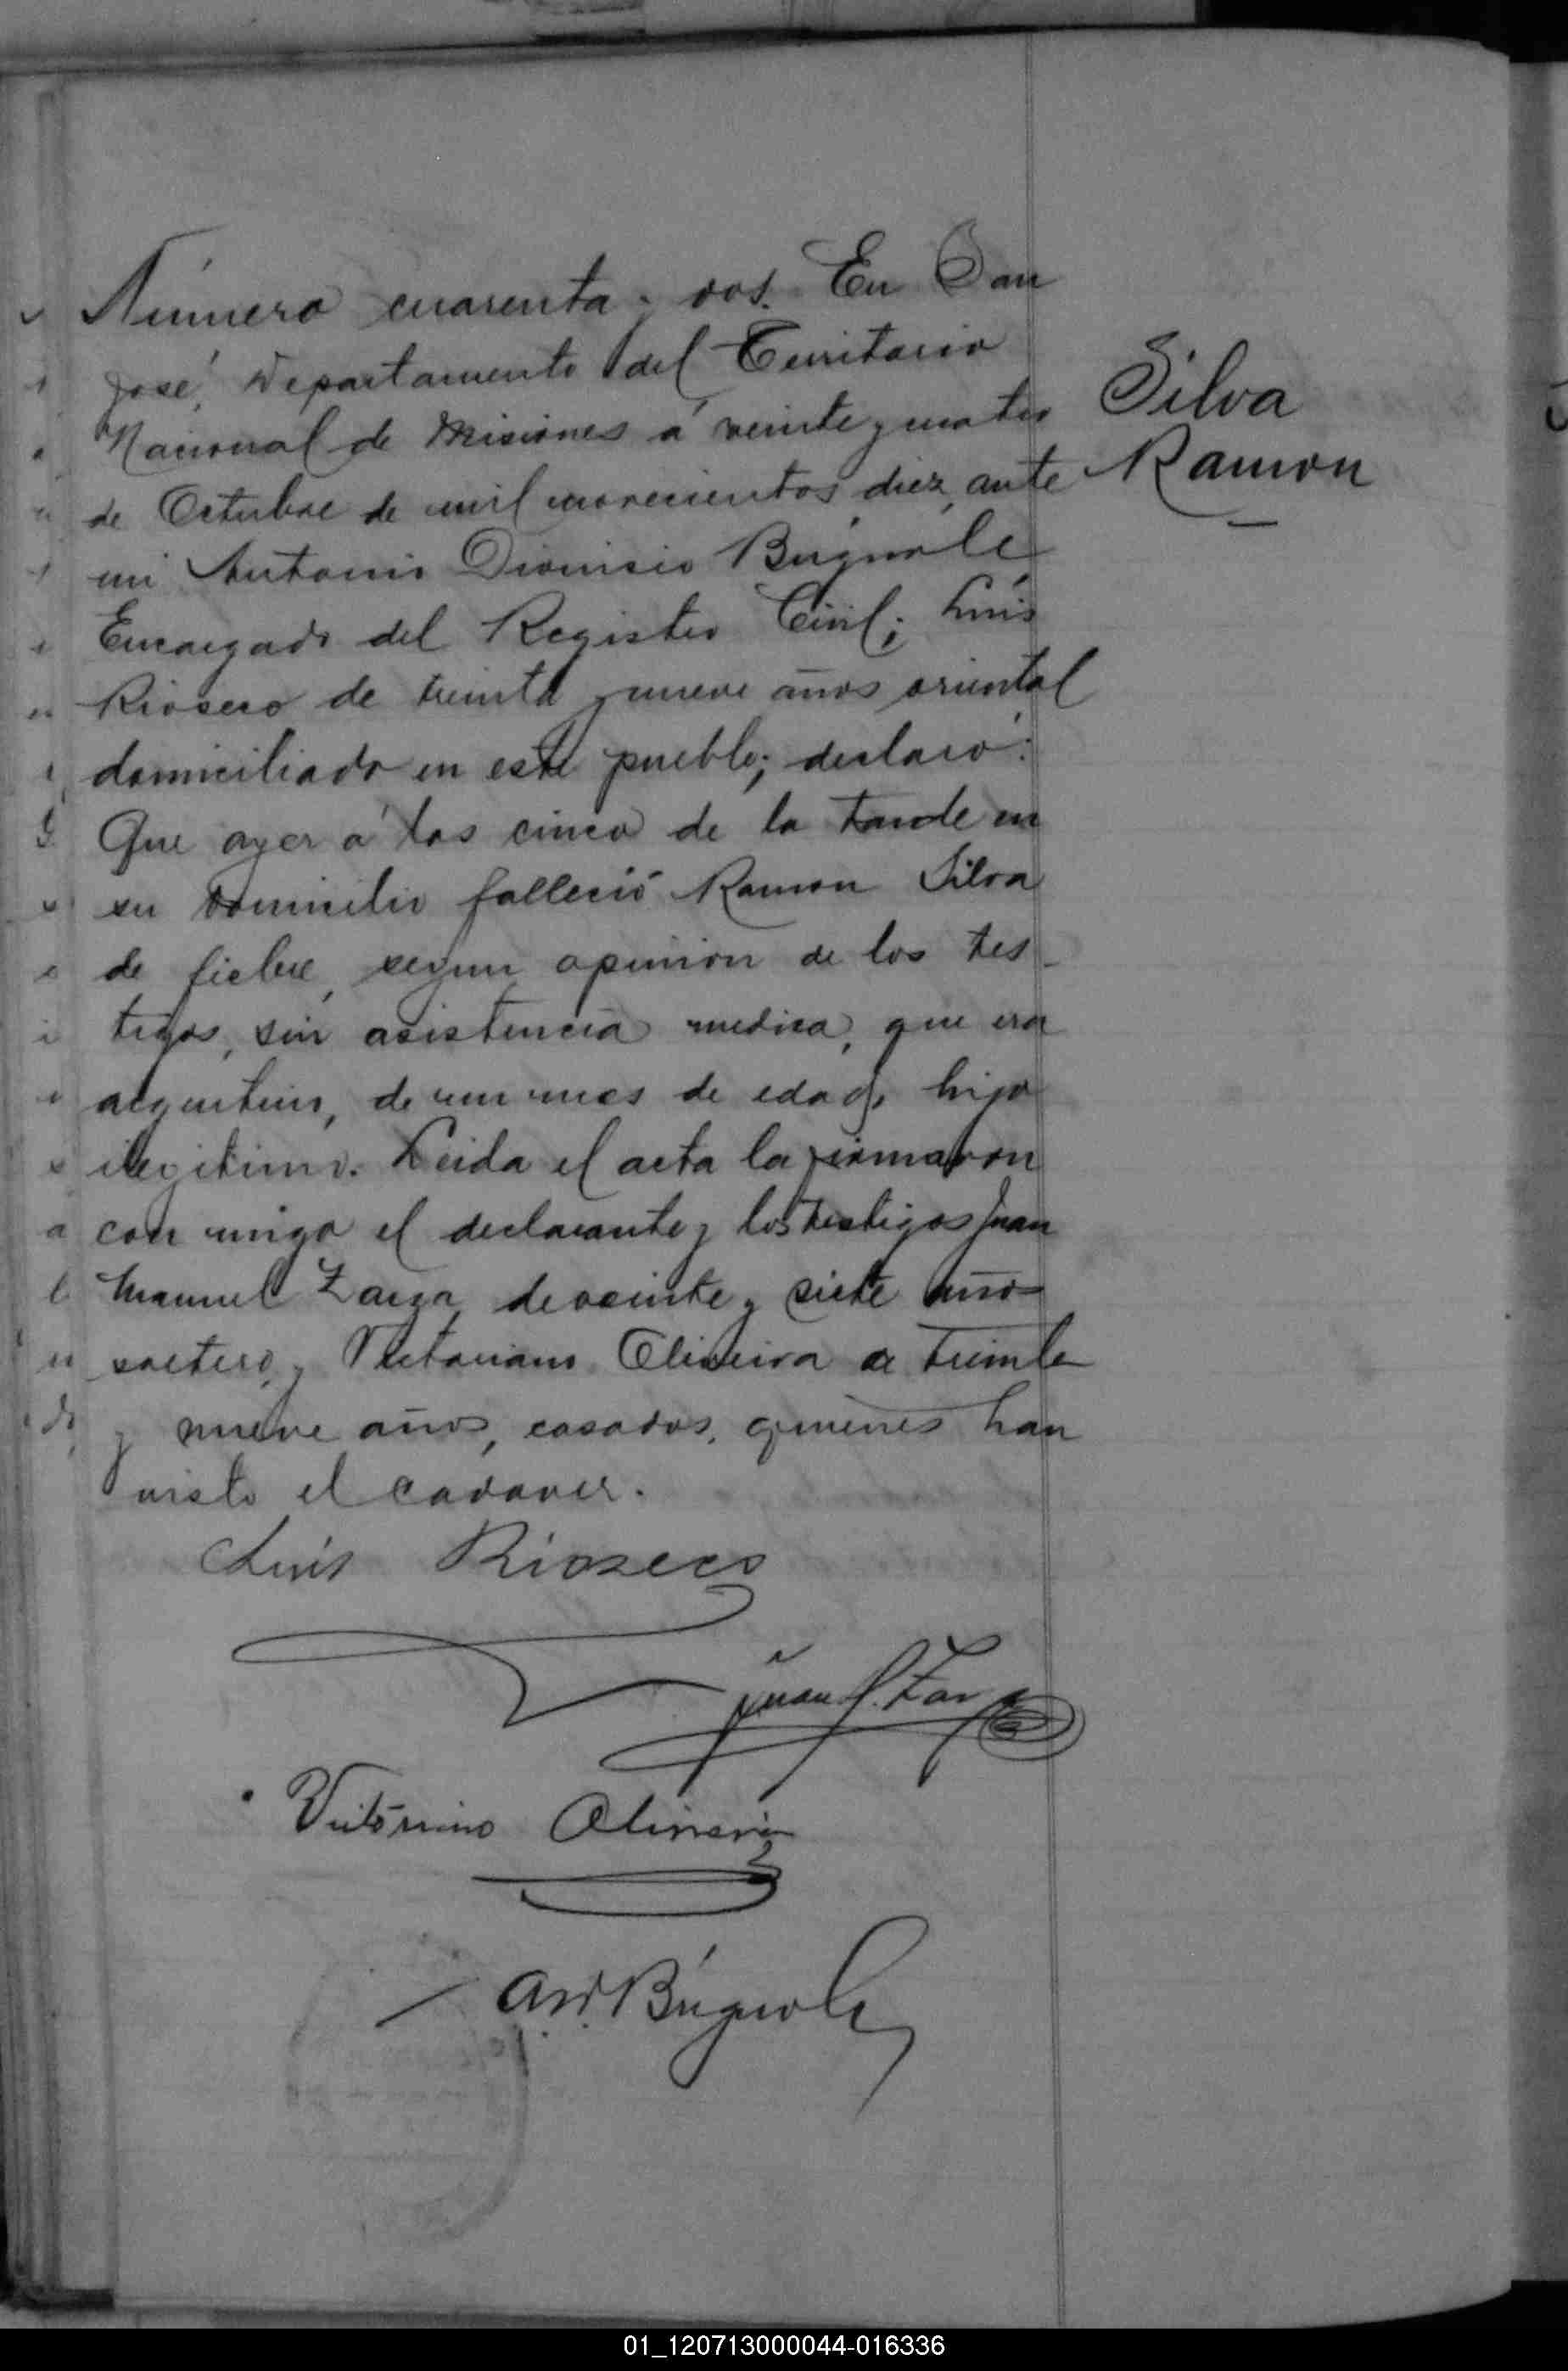 Número cuarenta y dos. En San
José, Departamento del Territorio
Nacional de Misiones á veinte y cuatro
de Octubre de mil novecientos diez, ante
mi Antonio Dionisio Búgnole
Encargado del Registro Civil; Luís
Rioseco de treinta y nueve años oriental
domiciliado en este pueblo; declaró:
Que ayer á las cinco de la tarde en
su domicilio falleció Ramon Silva
de fiebre, segun opinion de los tes-
tigos, sin asistencia medica, que era
argentino, de un mes de edad, hijo
ilegitimo. Leida el acta la firmaron
con migo el declarante y los testigos Juan
Manuel Zarza de veinte y siete años
soltero, y Victoriano Oliveira de treinta
y nueve años, casados, quienes han
visto el cadaver.
Silva
Ramon
Luís Rioseco
Juan
Oliveira
Búgnole
01_120713000044-016336